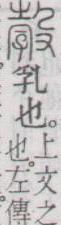 㝅乳也。上文之
也。左傳